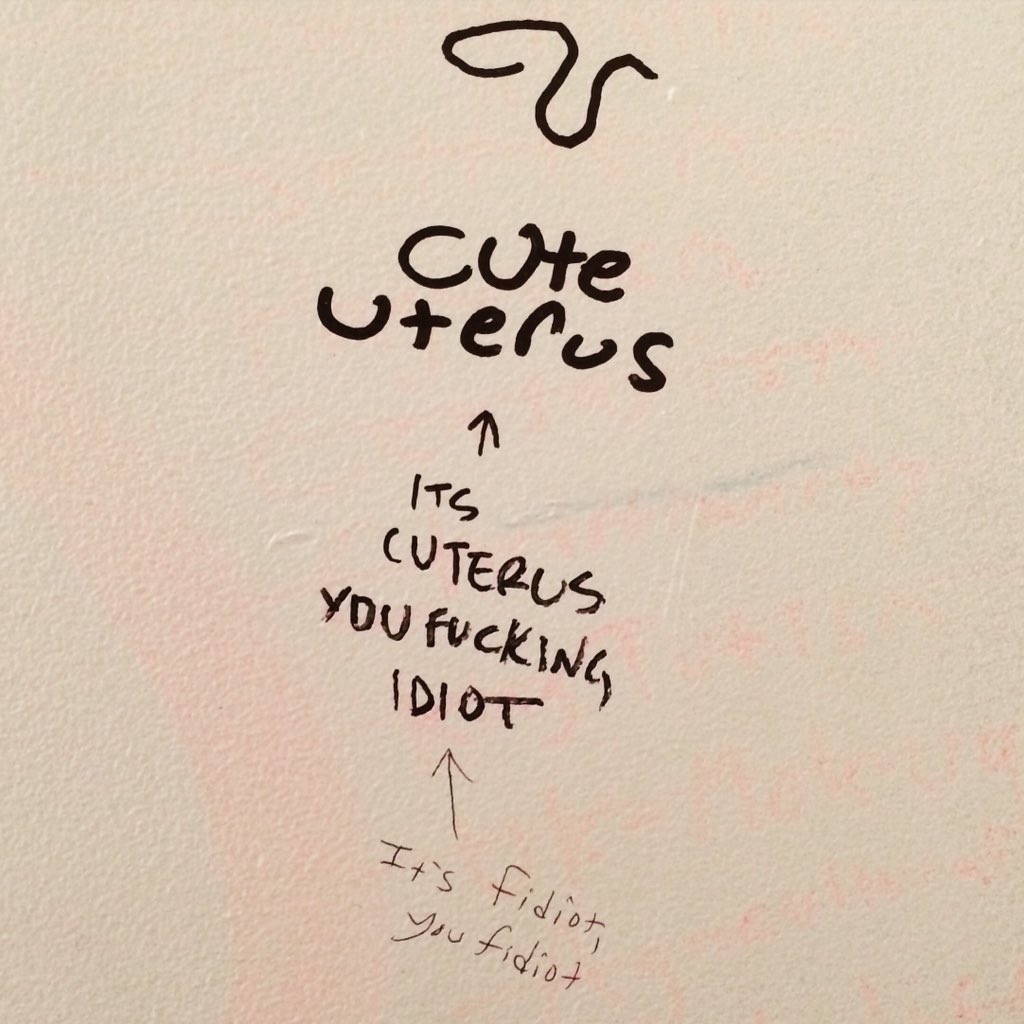 Cute
uterus
ITS
CUTERUS
YOU FUCKING
IDIOT
It's fidiot,
you fidiot